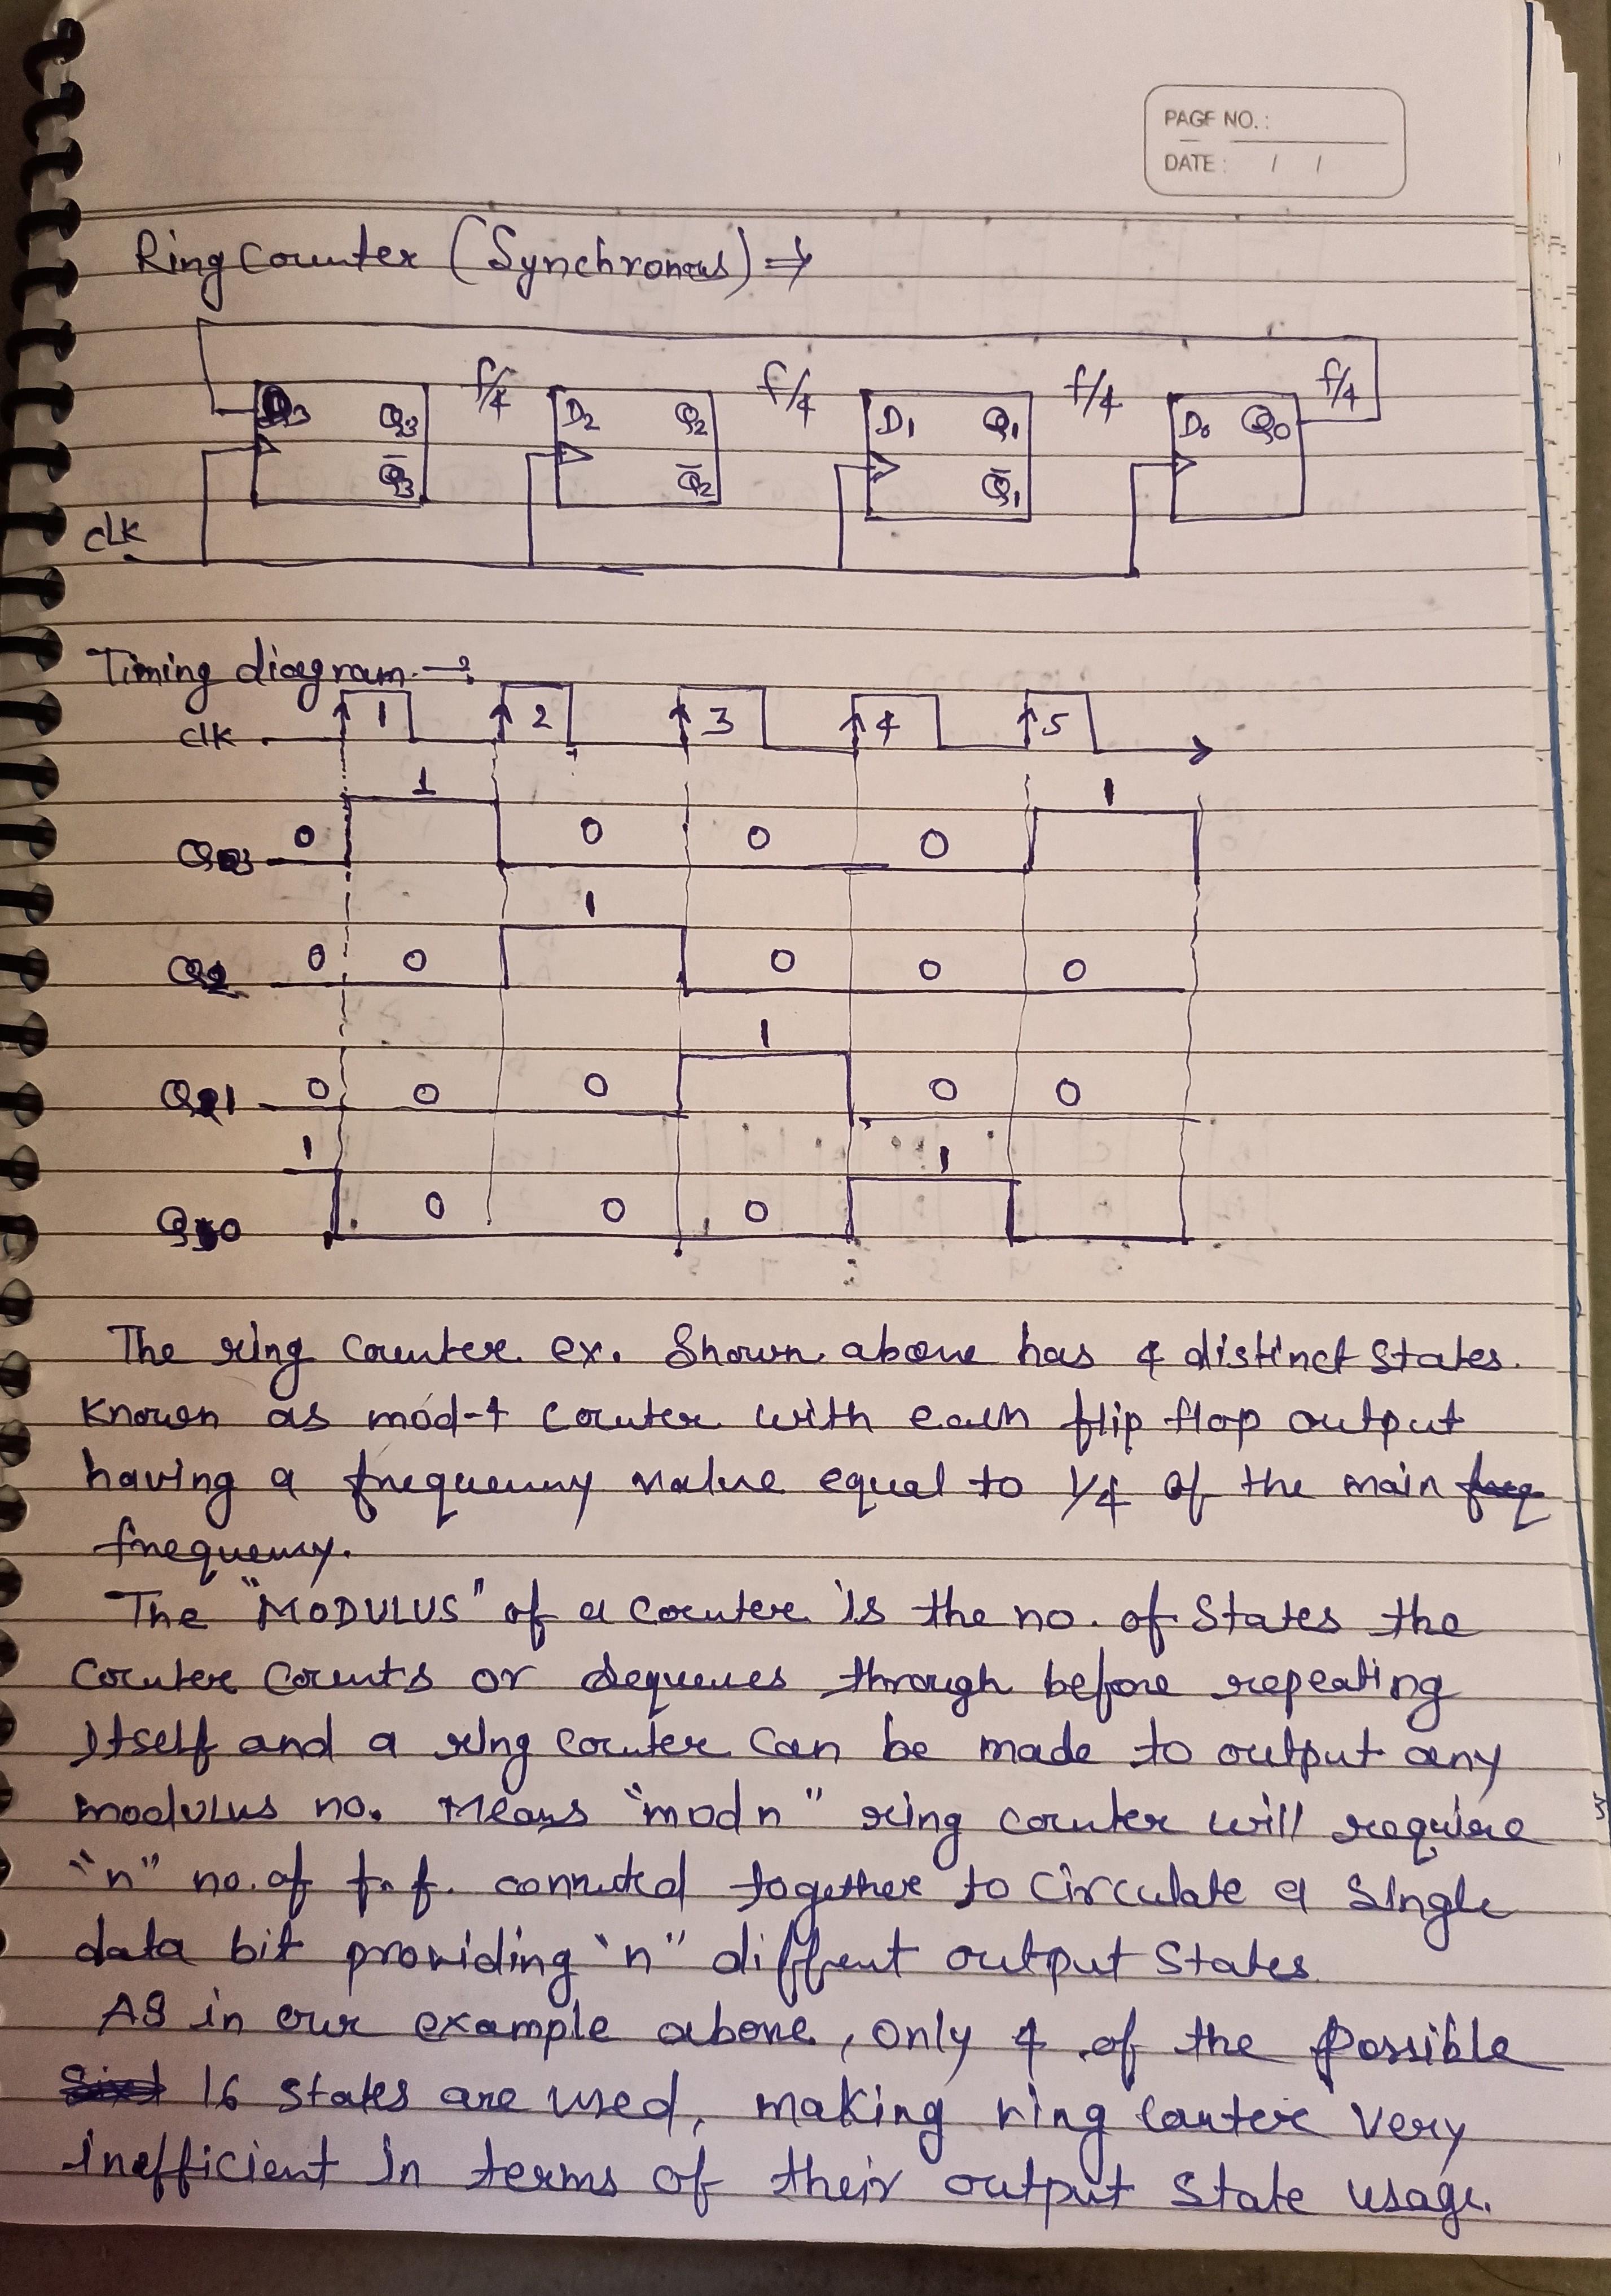 PAGE NO. :
DATE : / /
Ring counter (Synchronous) ⇒
f/4 f/4 f/4 f/4
D3 Q3 D2 Q2 D1 Q1 D0 Q0
Q̅3 Q̅2 Q̅1
CLK
Timing diagram →
clk 1 2 3 4 5
1 1
Q3 0 0 0 0
1
Q2 0 0 0 0 0
1
Q1 0 0 0 0 0
1 1
Q0 0 0 0
The ring counter ex. Shown above has 4 distinct States.
Known as mod-4 counter with each flip flop output
having a frequency value equal to 1/4 of the main freq
frequency.
The "MODULUS" of a counter is the no. of States the
counter counts or sequences through before repeating
itself and a ring counter can be made to output any
modulus no. Means "mod n" ring counter will require
"n" no. of f.f. connected together to circulate a single
data bit providing "n" diffrent output States.
As in our example above, only 4 of the possible
16 states are used, making ring couter very
inefficient in terms of their output state usage.